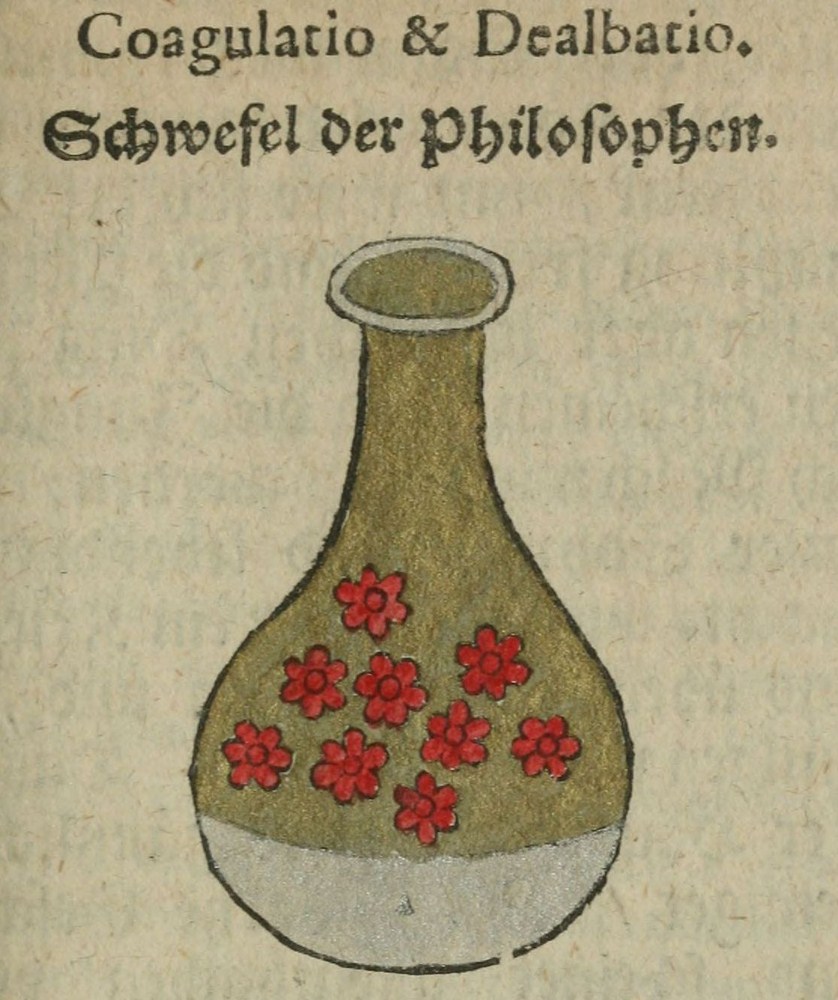 Coagulatio & Dealbatio.
Schwefel der Philoſophen.